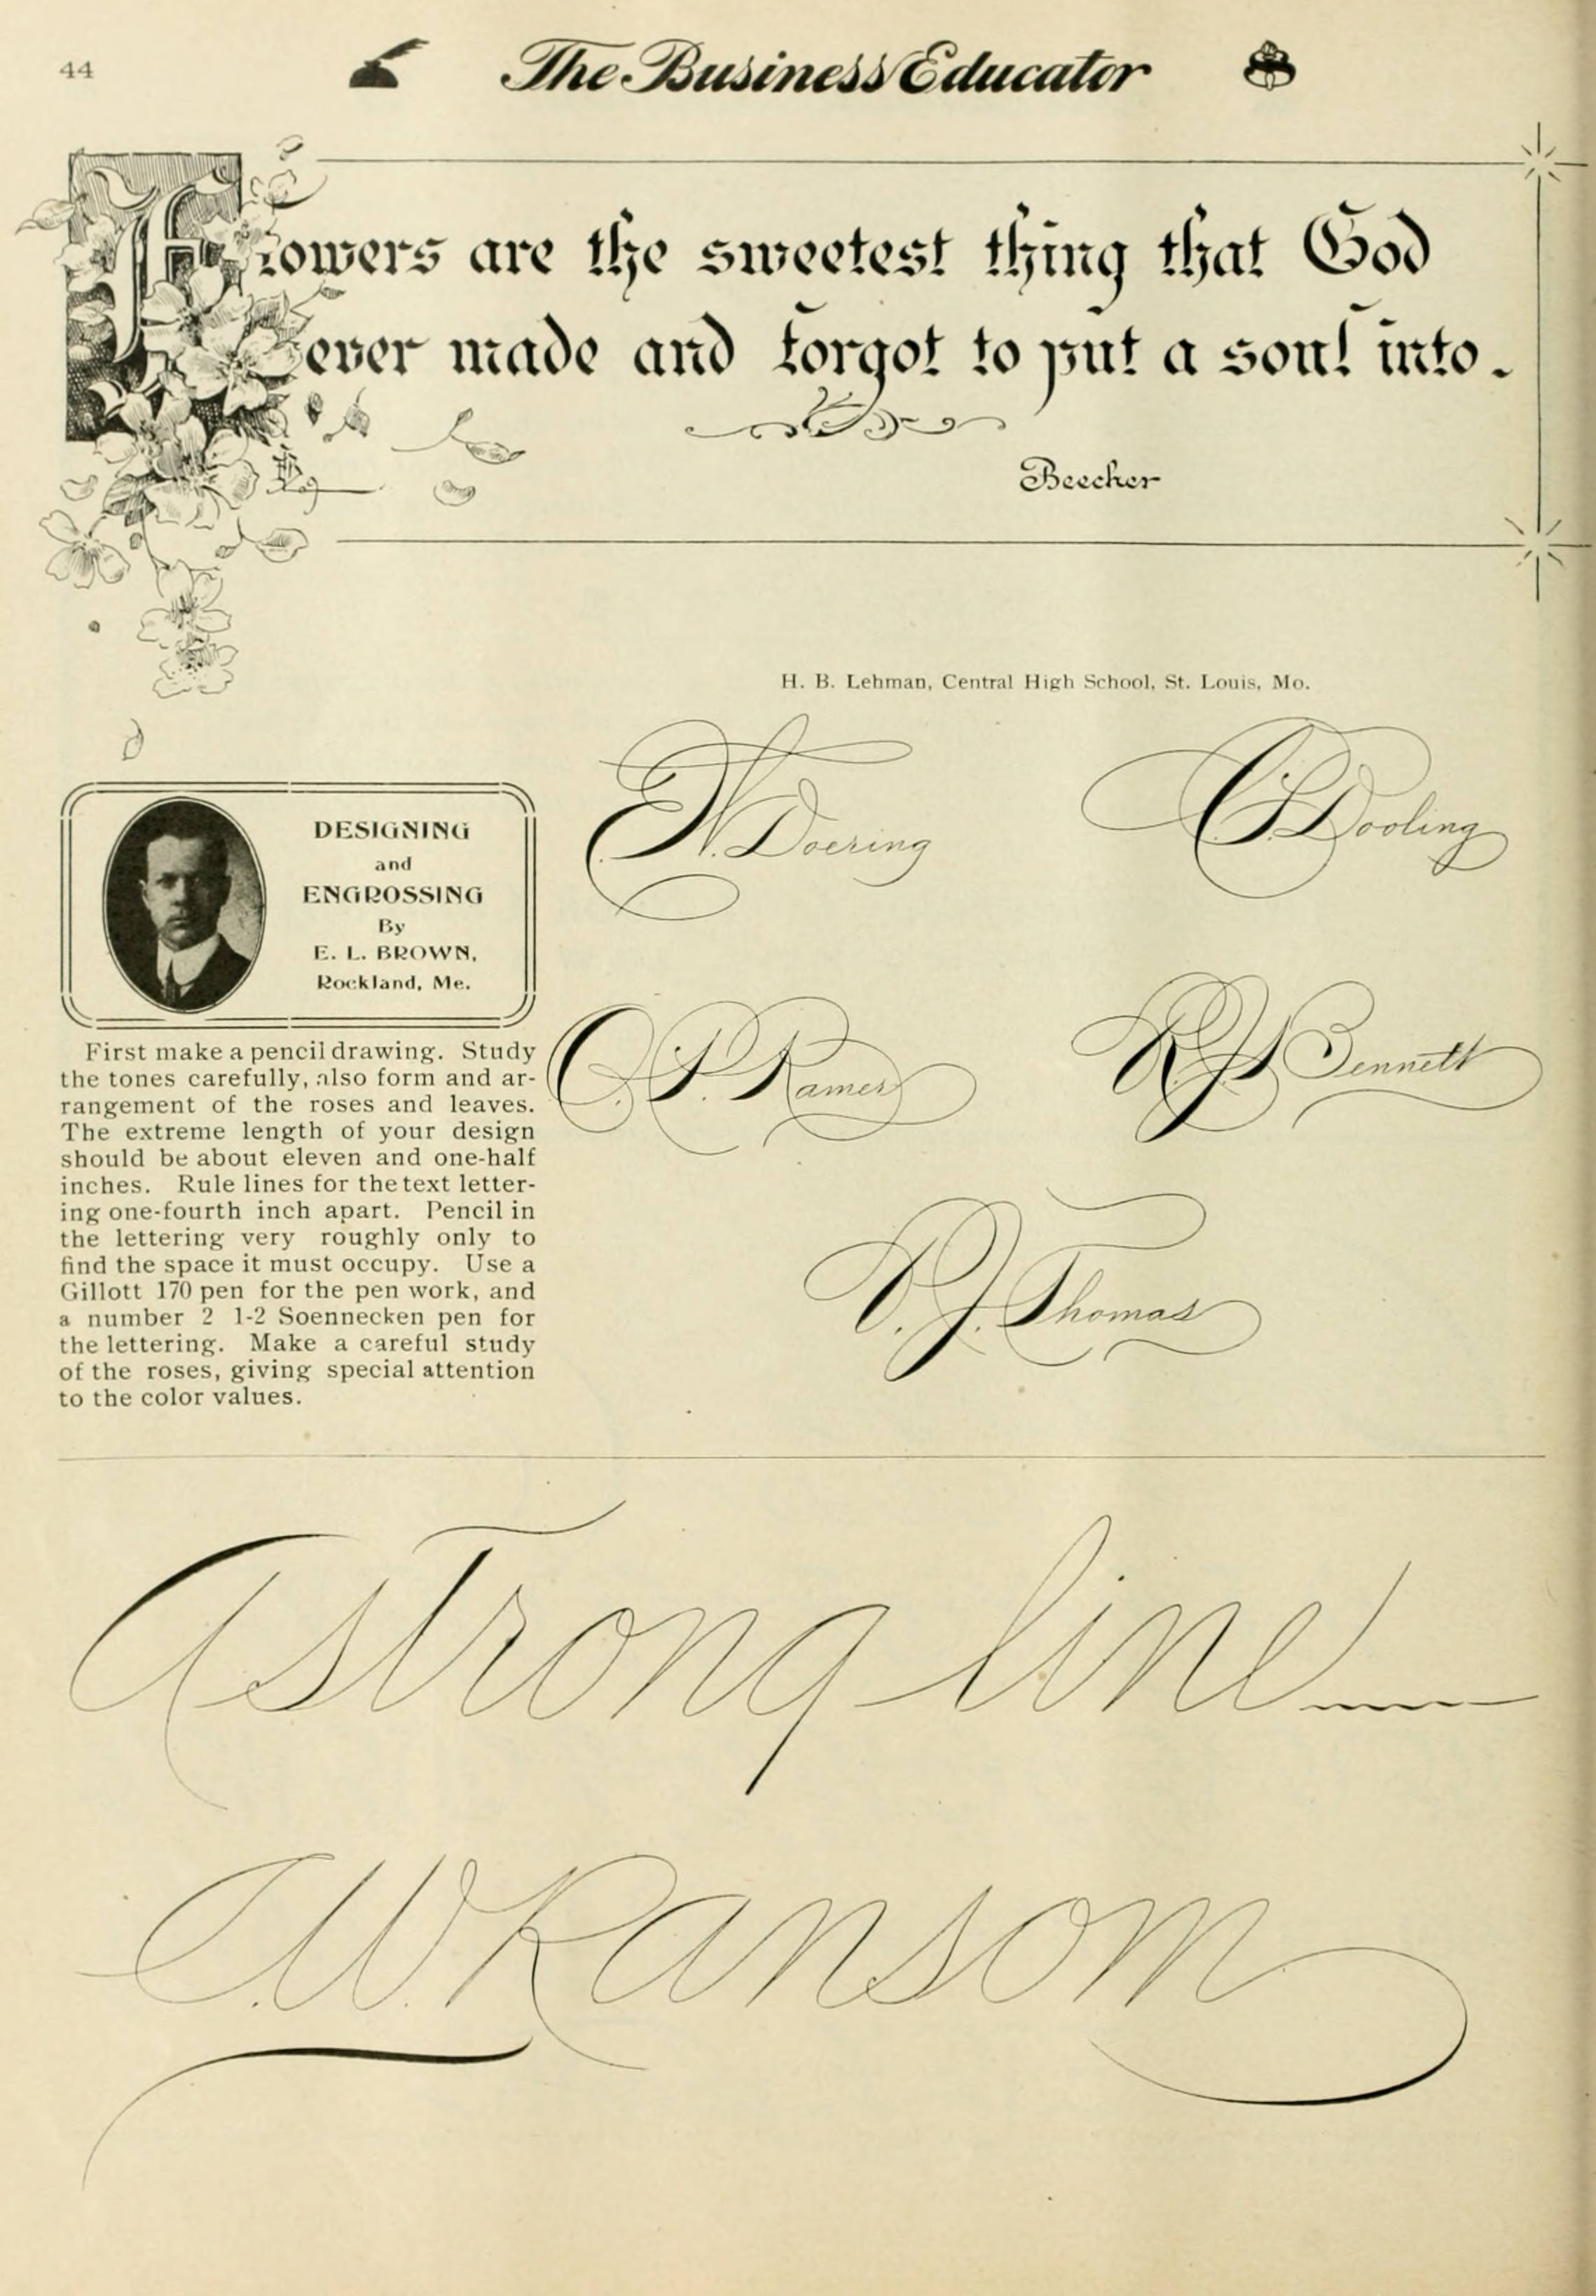 44
The Business Educator
Flowers are the sweetest thing that God
ever made and forgot to put a soul into.
Beecher
H. B. Lehman, Central High School, St. Louis, Mo.
E. W. Doering
C. S. Dooling
DESIGNING
and
ENGROSSING
By
E. L. BROWN,
Rockland, Me.
C. P. Ramer
Bennett
First make a pencil drawing. Study
the tones carefully, also form and ar-
rangement of the roses and leaves.
The extreme length of your design
should be about eleven and one-half
inches. Rule lines for the text letter-
ing one-fourth inch apart. Pencil in
the lettering very roughly only to
find the space it must occupy. Use a
Gillott 170 pen for the pen work, and
a number 2 1-2 Soennecken pen for
the lettering. Make a careful study
of the roses, giving special attention
to the color values.
P. J. Thomas
A strong line
C. W. Ransom